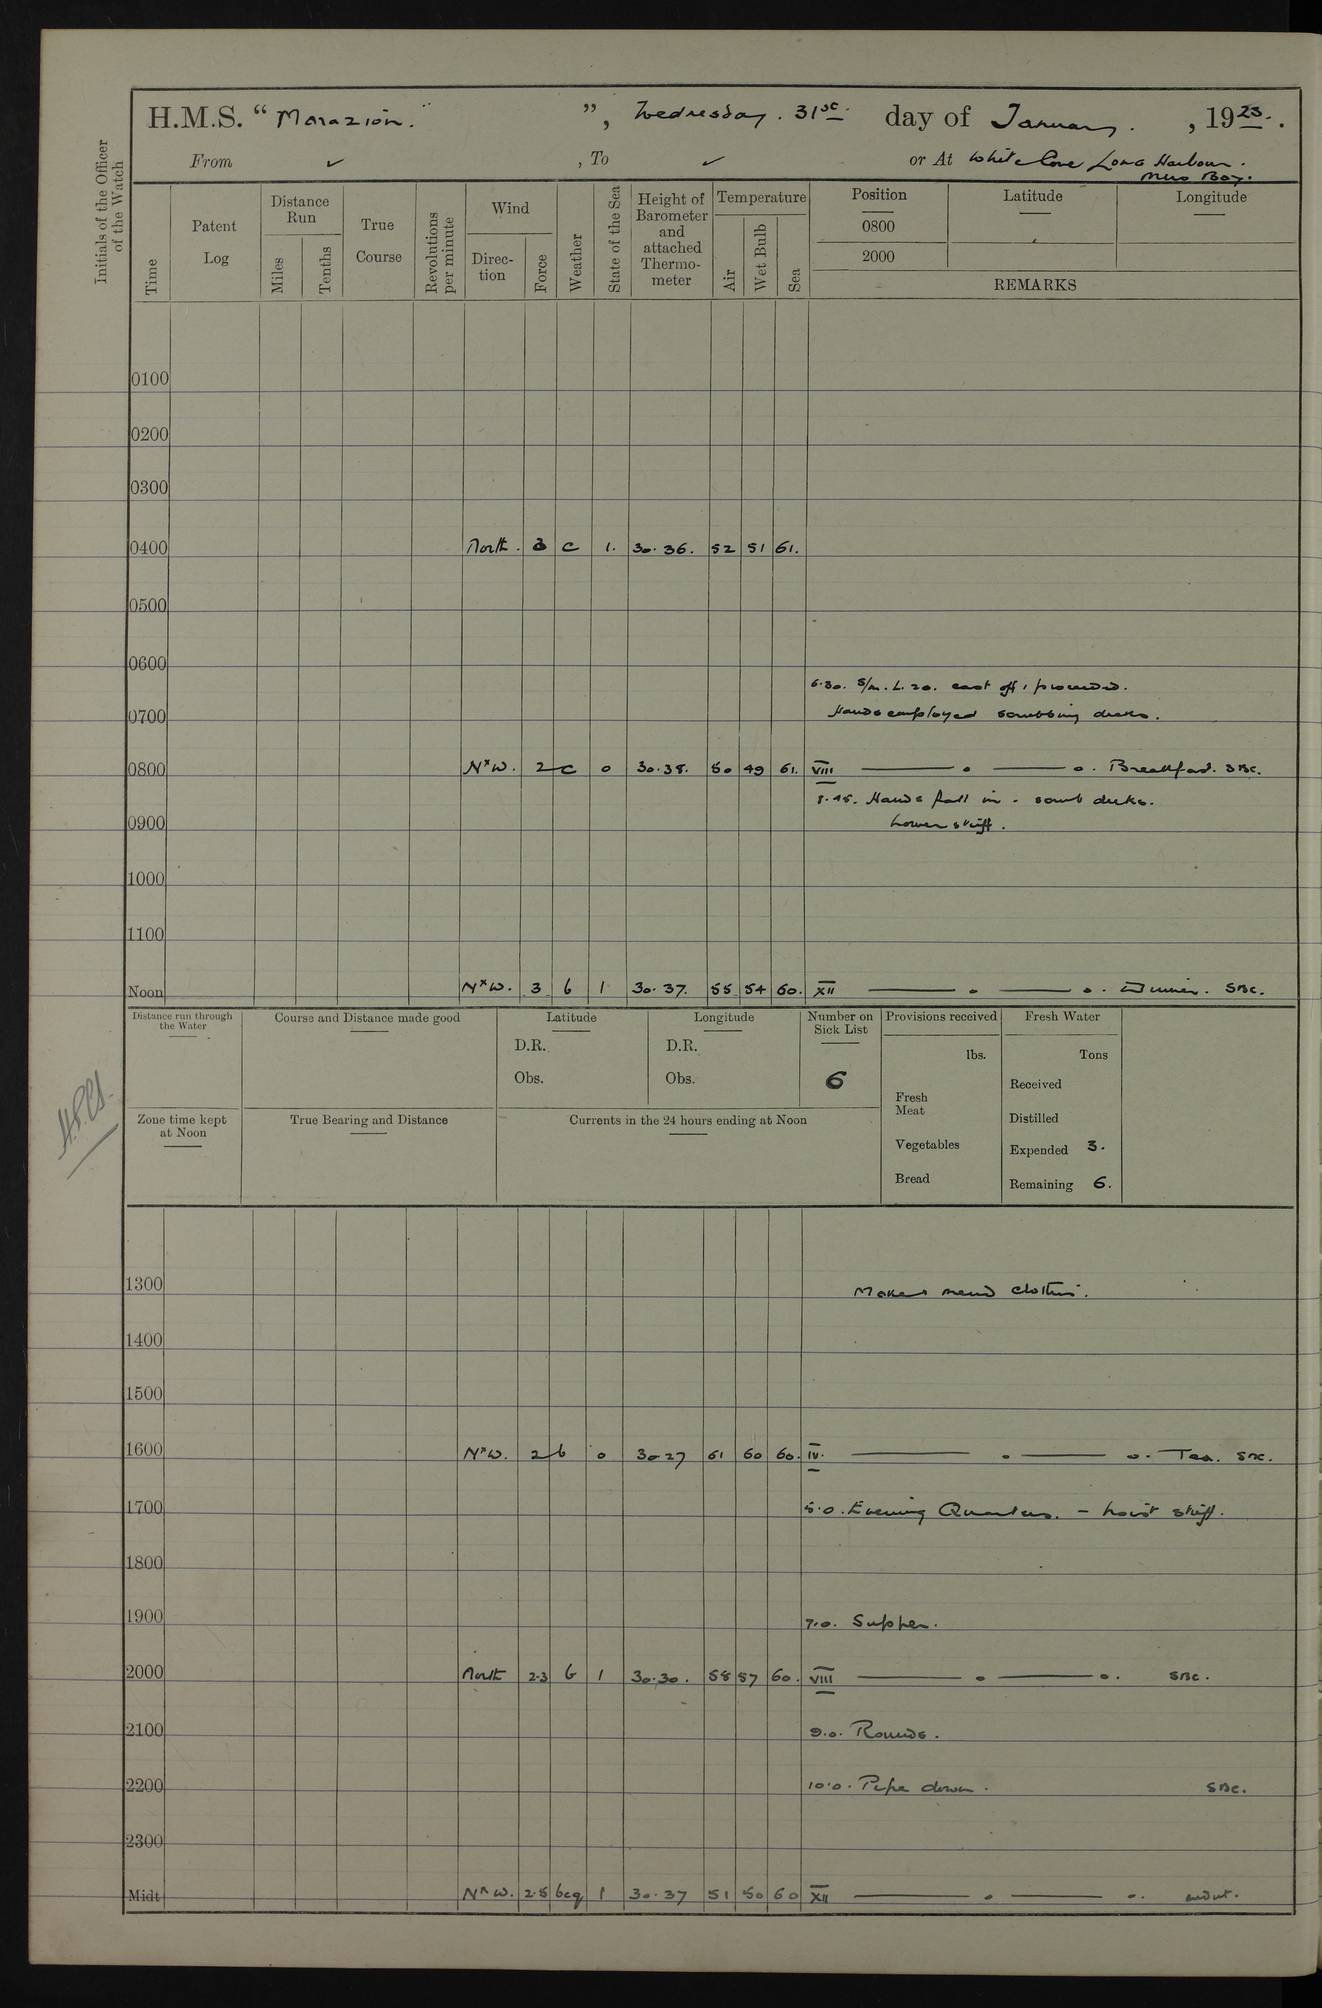 H.M.S. "Marazion." ", Wednesday. 31st day of January. , 1923.
From ✓ , To ✓ or At White Cove Long Harbour.
Mirs Bay.
Initials of the Officer of the Watch
Time
Patent Log
Distance Run
Miles
Tenths
True Course
Revolutions per minute
Wind
Direction
Force
Weather
State of the Sea
Height of Barometer and attached Thermometer
Temperature
Air
Wet Bulb
Sea
Position
Latitude
Longitude
0800
2000
REMARKS
0100
0200
0300
0400 North. 3 c 1. 30.36. 52 51 61.
0500
0600
6.30. S/m. L.20. cast off, proceeded.
0700 Hands employed scrubbing decks.
0800 N×W. 2 c 0 30.38. 50 49 61. VIII ——— o ——— o. Breakfast. SBC.
8.45. Hands fall in - scrub decks.
0900 Lower skiff.
1000
1100
Noon N×W. 3 b 1 30.37. 55 54 60. XII ——— o ——— o. Dinner. SBC.
Distance run through the Water
Course and Distance made good
Latitude
D.R.
Obs.
Longitude
D.R.
Obs.
Number on Sick List
6
Provisions received
lbs.
Fresh Meat
Vegetables
Bread
Fresh Water
Tons
Received
Distilled
Expended 3.
Remaining 6.
Zone time kept at Noon
True Bearing and Distance
Currents in the 24 hours ending at Noon
1300 Make & mend clothes.
1400
1500
1600 N×W. 2 b 0 30.27 61 60 60. IV. ——— o ——— o. Tea. SBC.
1700 5.0. Evening Quarters. - hoist skiff.
1800
1900 7.0. Supper.
2000 North 2.3 b 1 30.30. 58 57 60. VIII ——— o ——— o. SBC.
2100 9.0. Rounds.
2200 10.0. Pipe down. SBC.
2300
Midt N×W. 2.5 bcq 1 30.37 51 50 60 XII ——— o ——— o.